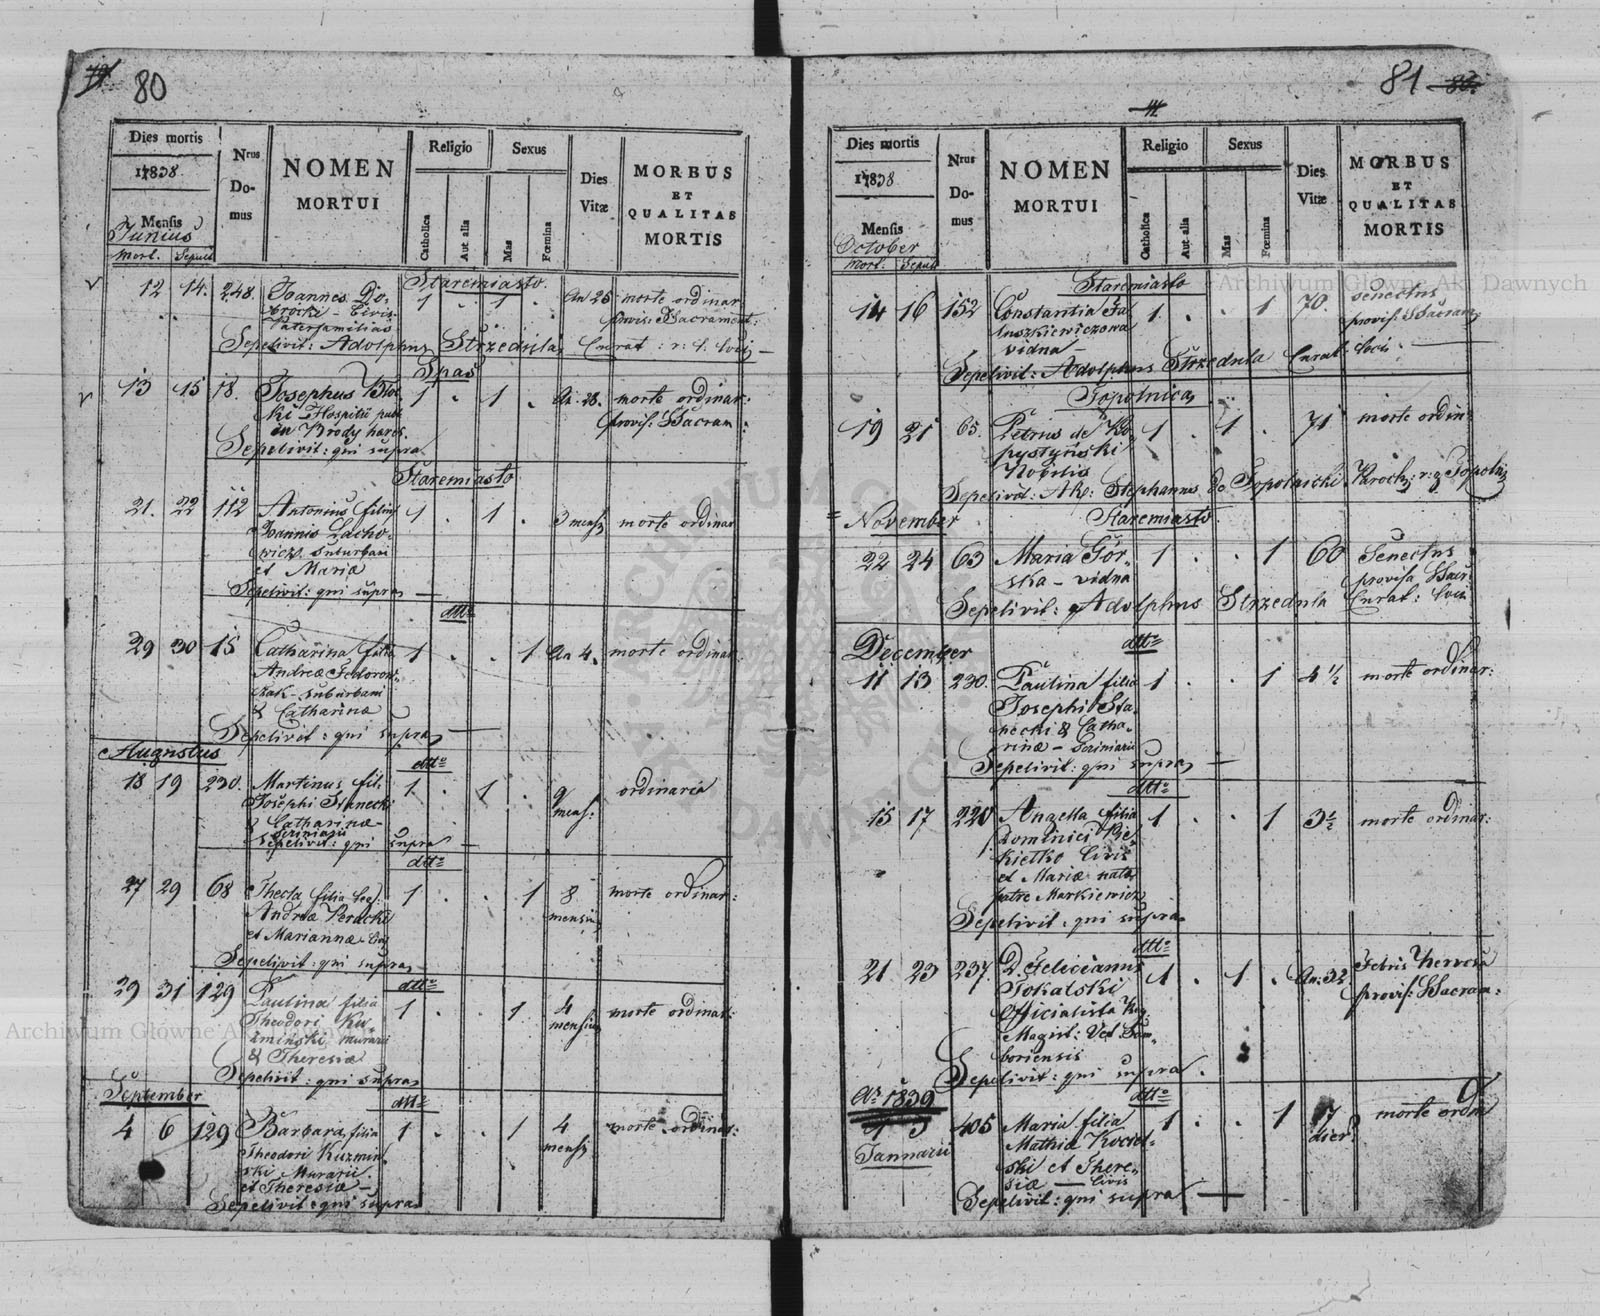 80
Dies mortis
1838
Mensis
Junius
Mort. Sepult
Nrus
Do-
mus
NOMEN
MORTUI
Religio
Catholica
Aut alia
Sexus
Mas
Fœmina
Dies
Vitæ
MORBUS
ET
QUALITAS
MORTIS
Staremiasto
12 14. 248. Joannes Do- 1 . 1 . An 25 morte ordinar:
brocki - Civis provis: SSacrament:
Paterfamilias
Sepelivit: Adolphus Strzedula Curat: r: l: loci
Spas
13 15 18. Josephus 1 . 1 . An. 28. morte ordinar:
Hospitii publ provis: SSacram:
en Brody
Sepelivit: qui supra
Staremiasto
21. 22 112 Antonius filius 1 . 1 . 3 mens morte ordinar
Joannis Lacho-
wicz suburbani
et Mariæ
Sepelivit: qui supra
dtto
29 30 15 Catharina filia 1 . . 1 An 4. morte ordinar:
Andreæ Fedorow-
czak - suburbani
& Catharinæ
Sepelivit: qui supra
Augustus
dtto
18 19 230. Martinus fil. 1 . 1 . 9 ordinaria
Josephi Stanecki mens:
& Catharinæ -
Scriniarii
Sepelivit: qui supra
dtto
27 29 68 Thecla filia 1 . . 1 8 morte ordinar:
Andreæ mensium
et Mariannæ
Sepelivit: qui supra
dtto
29 31 129 Paulina filia 1 . . 1 4 morte ordinar:
Theodori Ku- mensium
zminski murarii
& Theresiæ
Sepelivit: qui supra
September
dtto
4 6 129 Barbara filia 1 . . 1 4 morte ordinar:
Theodori Kuzmin- mens
ski Murarii
et Theresiæ -
Sepelivit: qui supra
81
Dies mortis
1838
Mensis
October
Mort. Sepult
Nrus
Do-
mus
NOMEN
MORTUI
Religio
Catholica
Aut alia
Sexus
Mas
Fœmina
Dies
Vitæ
MORBUS
ET
QUALITAS
MORTIS
Staremiasto
14 16 152 Constantia Ja- 1 . . 1 70. senectus
luszkiewiczowa provis: SSacram
vidua -
Sepelivit: Adolphus Strzedula Curat: loci
Topolnica
19 21 65. Petrus de Ko- 1 . 1 . 71 morte ordin:
pystynski
Nobilis
Sepelivit: Stephanus de Topolnicki Paroch: r: g: Topolni
November
Staremiasto
22 24 63 Maria Gór- 1 . . 1 60 Senectus
ska - vidua provisa SSacr:
Sepelivit: Adolphus Strzedula Curat: loci
December
dtto
11 13 230. Paulina filia 1 . . 1 4 1/2 morte ordinar:
Josephi Sta-
necki & Catha-
rinæ - Scriniarii
Sepelivit: qui supra
dtto
15 17 220 Angella filia 1 . . 1 3 1/2 morte ordinar:
Dominici
Civis
et Mariæ nata
patre Markiewicz
Sepelivit: qui supra
dtto
21 23 237. D. Felicianus 1 . 1 . An: 32 Febris Nervosa
Tokalski provis: SSacram:
Officialista Reg
Magist: Vet Sam-
boriensis
Sepelivit: qui supra.
Ao 1839
dtto
1 3 405 Maria filia 1 . . 1 17 morte ordin
Januarii
Mathiæ Kociel- dier
ski et There-
siæ - Civis
Sepelivit: qui supra
Archiwum Główne Akt Dawnych
Archiwum Główne Akt Dawnych